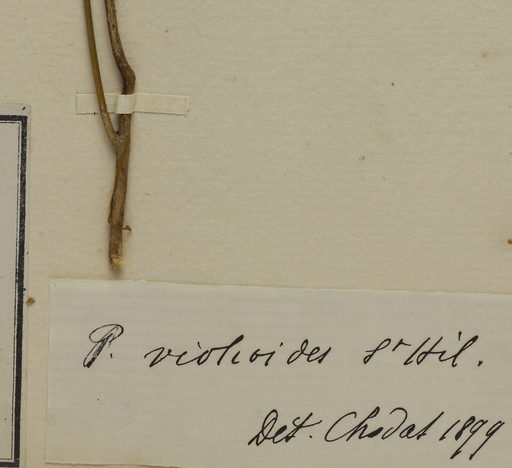 P. violioides St Hil.
Det. Chodat 1899